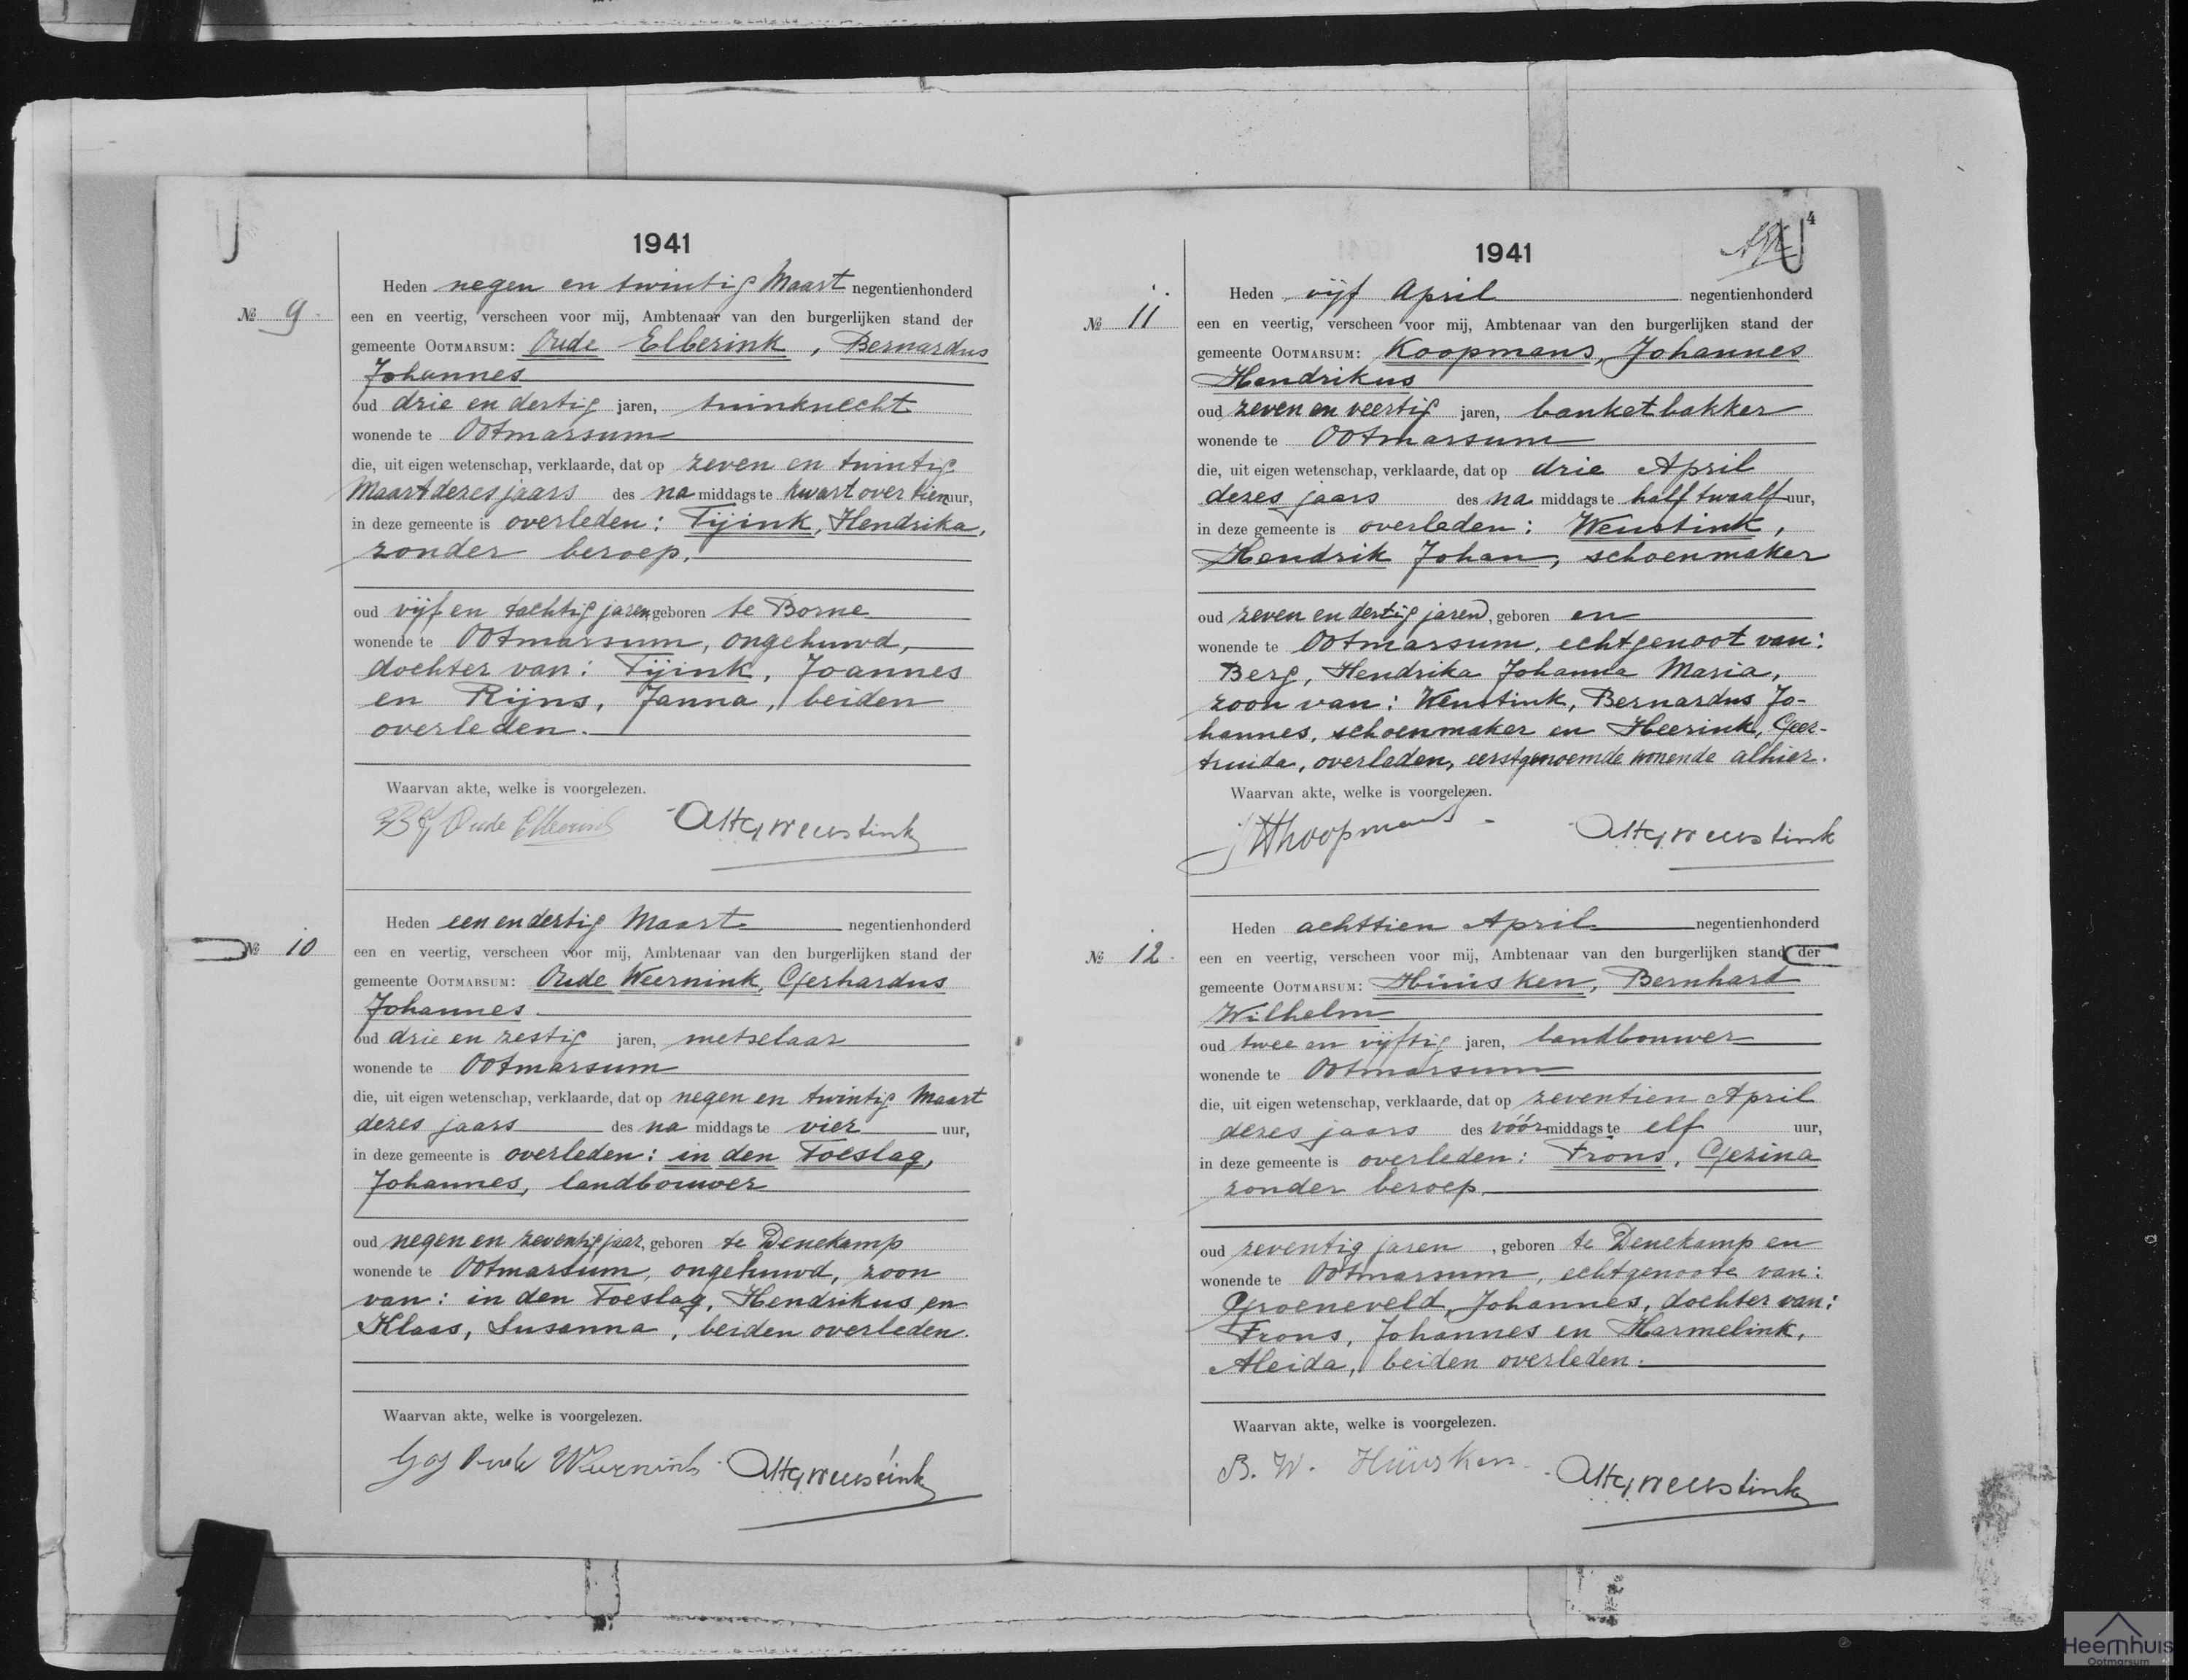 1941
Heden negen en twintig Maart negentienhonderd
№ 9.
een en veertig, verscheen voor mij, Ambtenaar van den burgerlijken stand der
gemeente OOTMARSUM: Oude Elberink, Bernardus
Johannes
oud drie en dertig jaren, tuinknecht
wonende te Ootmarsum
die, uit eigen wetenschap, verklaarde, dat op zeven en twintig
Maart dezes jaars des na middags te kwart over tien uur,
in deze gemeente is overleden: Tijink, Hendrika,
zonder beroep,
oud vijf en tachtig jaren geboren te Borne
wonende te Ootmarsum, ongehuwd,
dochter van: Tijink, Joannes
en Rijns, Janna, beiden
overleden.
Waarvan akte, welke is voorgelezen.
BJ Oude Elberink AHGWeustink
Heden een en dertig Maart negentienhonderd
№ 10
een en veertig, verscheen voor mij, Ambtenaar van den burgerlijken stand der
gemeente OOTMARSUM: Oude Weernink, Gerhardus
Johannes.
oud drie en zestig jaren, metselaar
wonende te Ootmarsum
die, uit eigen wetenschap, verklaarde, dat op negen en twintig Maart
dezes jaars des na middags te vier uur,
in deze gemeente is overleden: in den Toeslag,
Johannes, landbouwer
oud negen en zeventig jaar, geboren te Denekamp
wonende te Ootmarsum, ongehuwd, zoon
van: in den Toeslag, Hendrikus en
Klaas, Susanna, beiden overleden.
Waarvan akte, welke is voorgelezen.
GJ Oude Weernink AHGWeustink
4
1941
Heden vijf April negentienhonderd
№ 11
een en veertig, verscheen voor mij, Ambtenaar van den burgerlijken stand der
gemeente OOTMARSUM: Koopmans, Johannes
Hendrikus
oud zeven en veertig jaren, banketbakker
wonende te Ootmarsum
die, uit eigen wetenschap, verklaarde, dat op drie April
dezes jaars des na middags te half twaalf uur,
in deze gemeente is overleden: Weustink,
Hendrik Johan, schoenmaker
oud zeven en dertig jaren, geboren en
wonende te Ootmarsum, echtgenoot van:
Berg, Hendrika Johanna Maria,
zoon van: Weustink, Bernardus Jo-
hannes, schoenmaker en Heerink, Geer-
truida, overleden, eerstgenoemde wonende alhier.
Waarvan akte, welke is voorgelezen.
JHKoopmans AHGWeustink
Heden achttien April negentienhonderd
№ 12.
een en veertig, verscheen voor mij, Ambtenaar van den burgerlijken stand der
gemeente OOTMARSUM: Hüüsken, Bernhard
Wilhelm
oud twee en vijftig jaren, landbouwer
wonende te Ootmarsum
die, uit eigen wetenschap, verklaarde, dat op zeventien April
dezes jaars des vóór middags te elf uur,
in deze gemeente is overleden: Frons, Gezina
zonder beroep.
oud zeventig jaren, geboren te Denekamp en
wonende te Ootmarsum, echtgenoote van:
Groeneveld, Johannes, dochter van:
Frons, Johannes en Harmelink,
Aleida, beiden overleden.
Waarvan akte, welke is voorgelezen.
B. W. Hüüsken AHGWeustink
Heemhuis
Ootmarsum